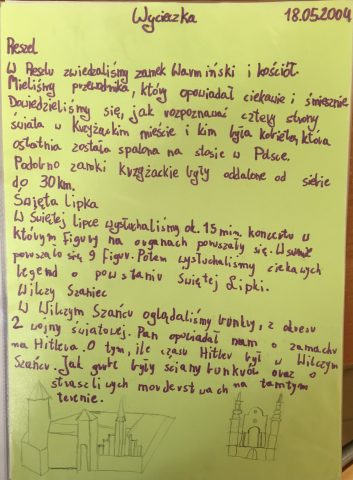 Wycieczka 18.05.2004
Reszel
W Reszlu zwiedzaliśmy zamek Warmiński i kościół.
Mieliśmy przewodnika, który opowiadał ciekawie i śmiesznie
Dowiedzieliśmy się, jak rozpoznawać cztery strony
świata w Krzyżackim mieście i kim była kobieta, która
ostatnia została spalona na stosie w Polsce.
Podobno zamki krzyżackie były oddalone od siebie
do 30km.
Święta Lipka
W Świętej Lipce wysłuchaliśmy ok. 15 min. koncertu w
którym figury na organach poruszały się. W sumie
poruszało się 9 figur. Potem wysłuchaliśmy ciekawych
legend o powstaniu Świętej Lipki.
Wilczy Szaniec
W Wilczym Szańcu oglądaliśmy bunkry, z okresu
2 wojny światowej. Pan opowiadał nam o zamachu
na Hitlera. O tym, ile czasu Hitler był w Wilczym
Szańcu. Jak grube były ściany bunkrów oraz o
straszliwych morderstwach na tamtym
terenie.